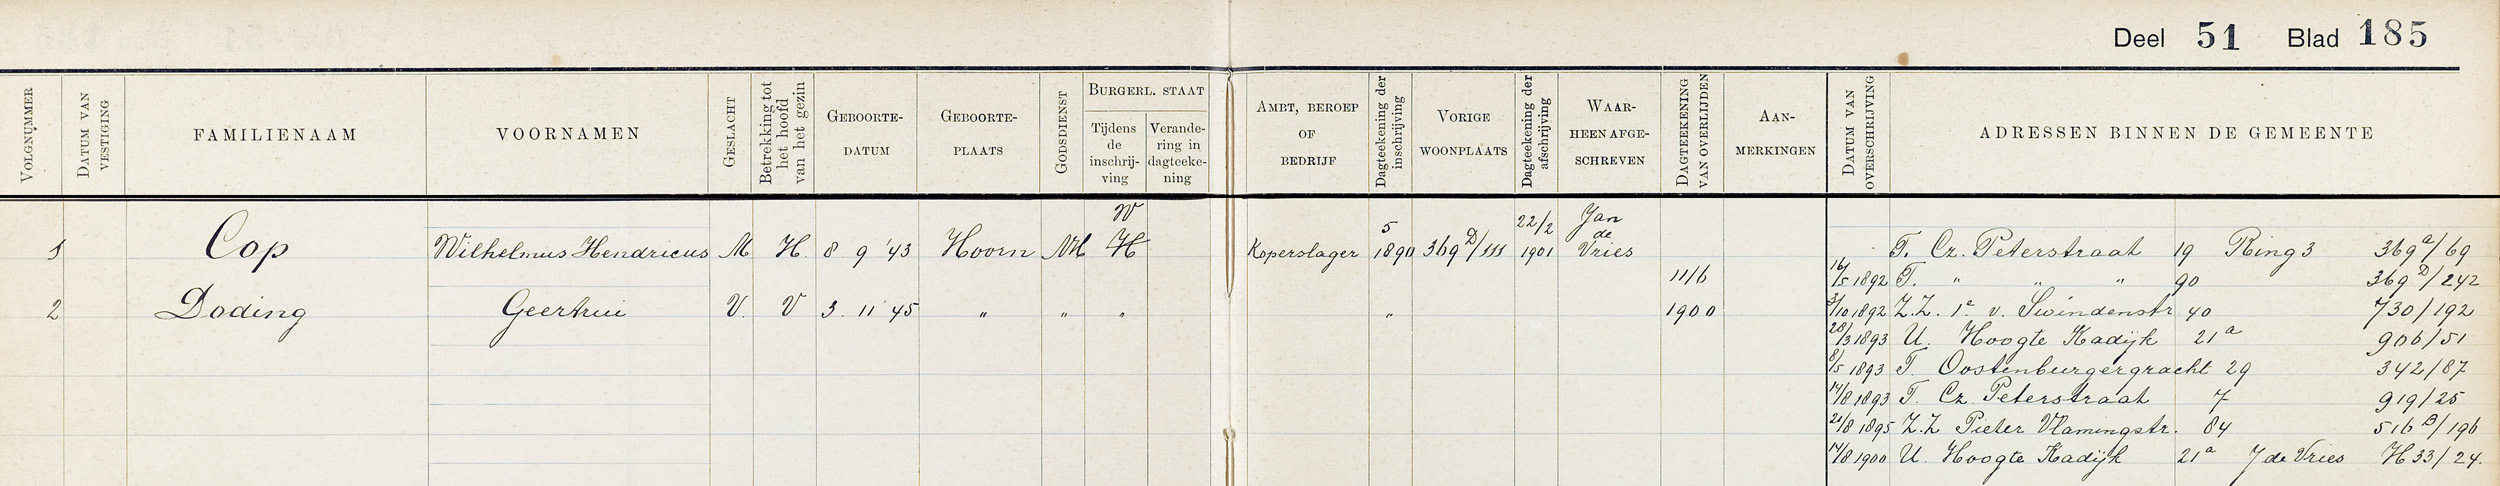 Deel 51 Blad 185
VOLGNUMMER
DATUM VAN VESTIGING
FAMILIENAAM
VOORNAMEN
GESLACHT
Betrekking tot het hoofd van het gezin
GEBOORTE-DATUM
GEBOORTE-PLAATS
GODSDIENST
BURGERL. STAAT
Tijdens de inschrij-ving
Verande-ring in dagteeke-ning
AMBT, BEROEP OF BEDRIJF
Dagteekening der inschrijving
VORIGE WOONPLAATS
Dagteekening der afschrijving
WAAR-HEEN AFGE-SCHREVEN
DAGTEEKENING VAN OVERLIJDEN
AAN-MERKINGEN
DATUM VAN OVERSCHRIJVING
ADRESSEN BINNEN DE GEMEENTE
W 5 22/2 Jan de
1 Cop Wilhelmus Hendricus M H. 8 9 '43 Hoorn NH H Koperslager 1890 369 D/ 1901 Vries T. Cz. Peterstraat 19 Ring 3 369a/69
11/6 16/5 1892 T. " " " 90 369D/242
2 Doding Geertrui V. V 3. 11 '45 " " " " 1900 31/10 1892 Z.Z. 1e v. Swindenstr 40 730/192
28/3 1893 U. Hoogte Kadijk 21a 906/51
8/5 1893 T. Oostenburgergracht 29 342/87
14/8 1893 T. Cz. Peterstraat 7 919/25
21/8 1895 Z.Z Pieter Vlamingstr. 84 516B/196
14/8 1900 U. Hoogte Kadijk 21a J de Vries H33/24.